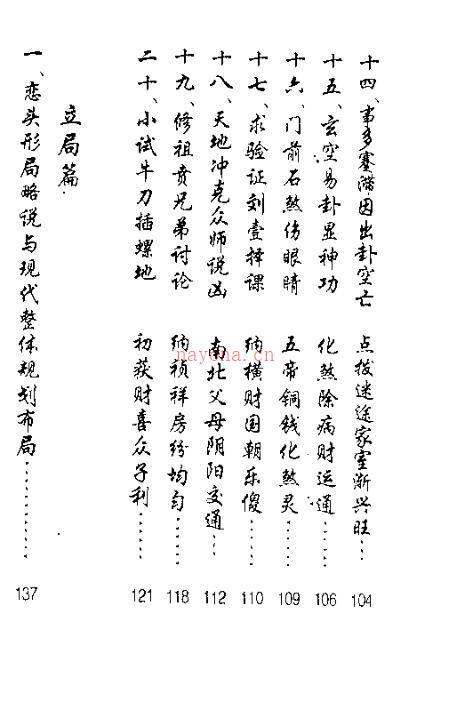 十四、事多蹇滞因出卦空亡 点拨迷途家室渐兴旺…… 104
十五、玄空易卦显神功 化煞除病财运通…… 106
十六、门前石煞伤眼睛 五帝铜钱化煞灵…… 109
十七、求验证刘壹择课 纳横财国朝乐傻…… 110
十八、天地冲克众师说凶 南北父母阴阳交通…… 112
十九、修祖贲兄弟讨论 纳祯祥房纷均匀…… 118
二十、小试牛刀插螺地 初获财喜众子利…… 121
立局篇
一、恋头形局略说与现代整体规划布局………… 137
nayona.cn